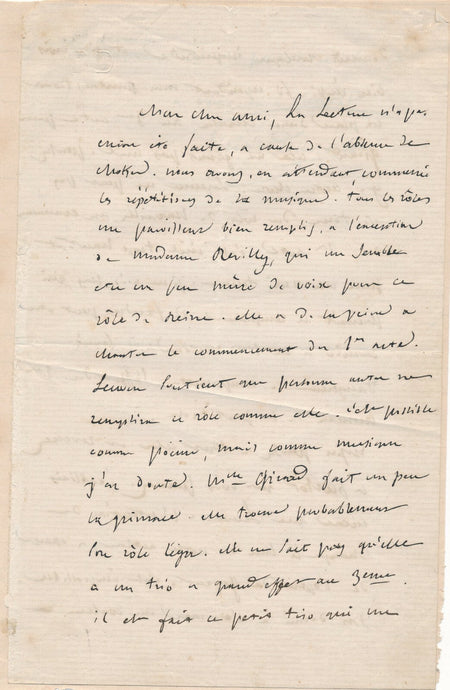 Mon cher ami, La Lecture n'a pas
encore été faite, a cause de l'absence de
nous avons, en attendant, commencé
les répétitions de la musique. Tous les rôles
me paraissent bien remplis, a l'exception
de madame Revilly, qui me semble
être un peu mûre de voix pour ce
rôle de Reine. elle a de la peine a
chanter le commencement du 1er acte.
soutient que personne autre ne
remplira ce rôle comme elle. c'est possible
comme poème, mais comme musique
j'en doute. Melle Girard fait un peu
la grimace. elle trouve probablement
son rôle léger. elle ne sait pas qu'elle
a un trio a grand effet au 3eme.
il est fait ce petit trio qui me